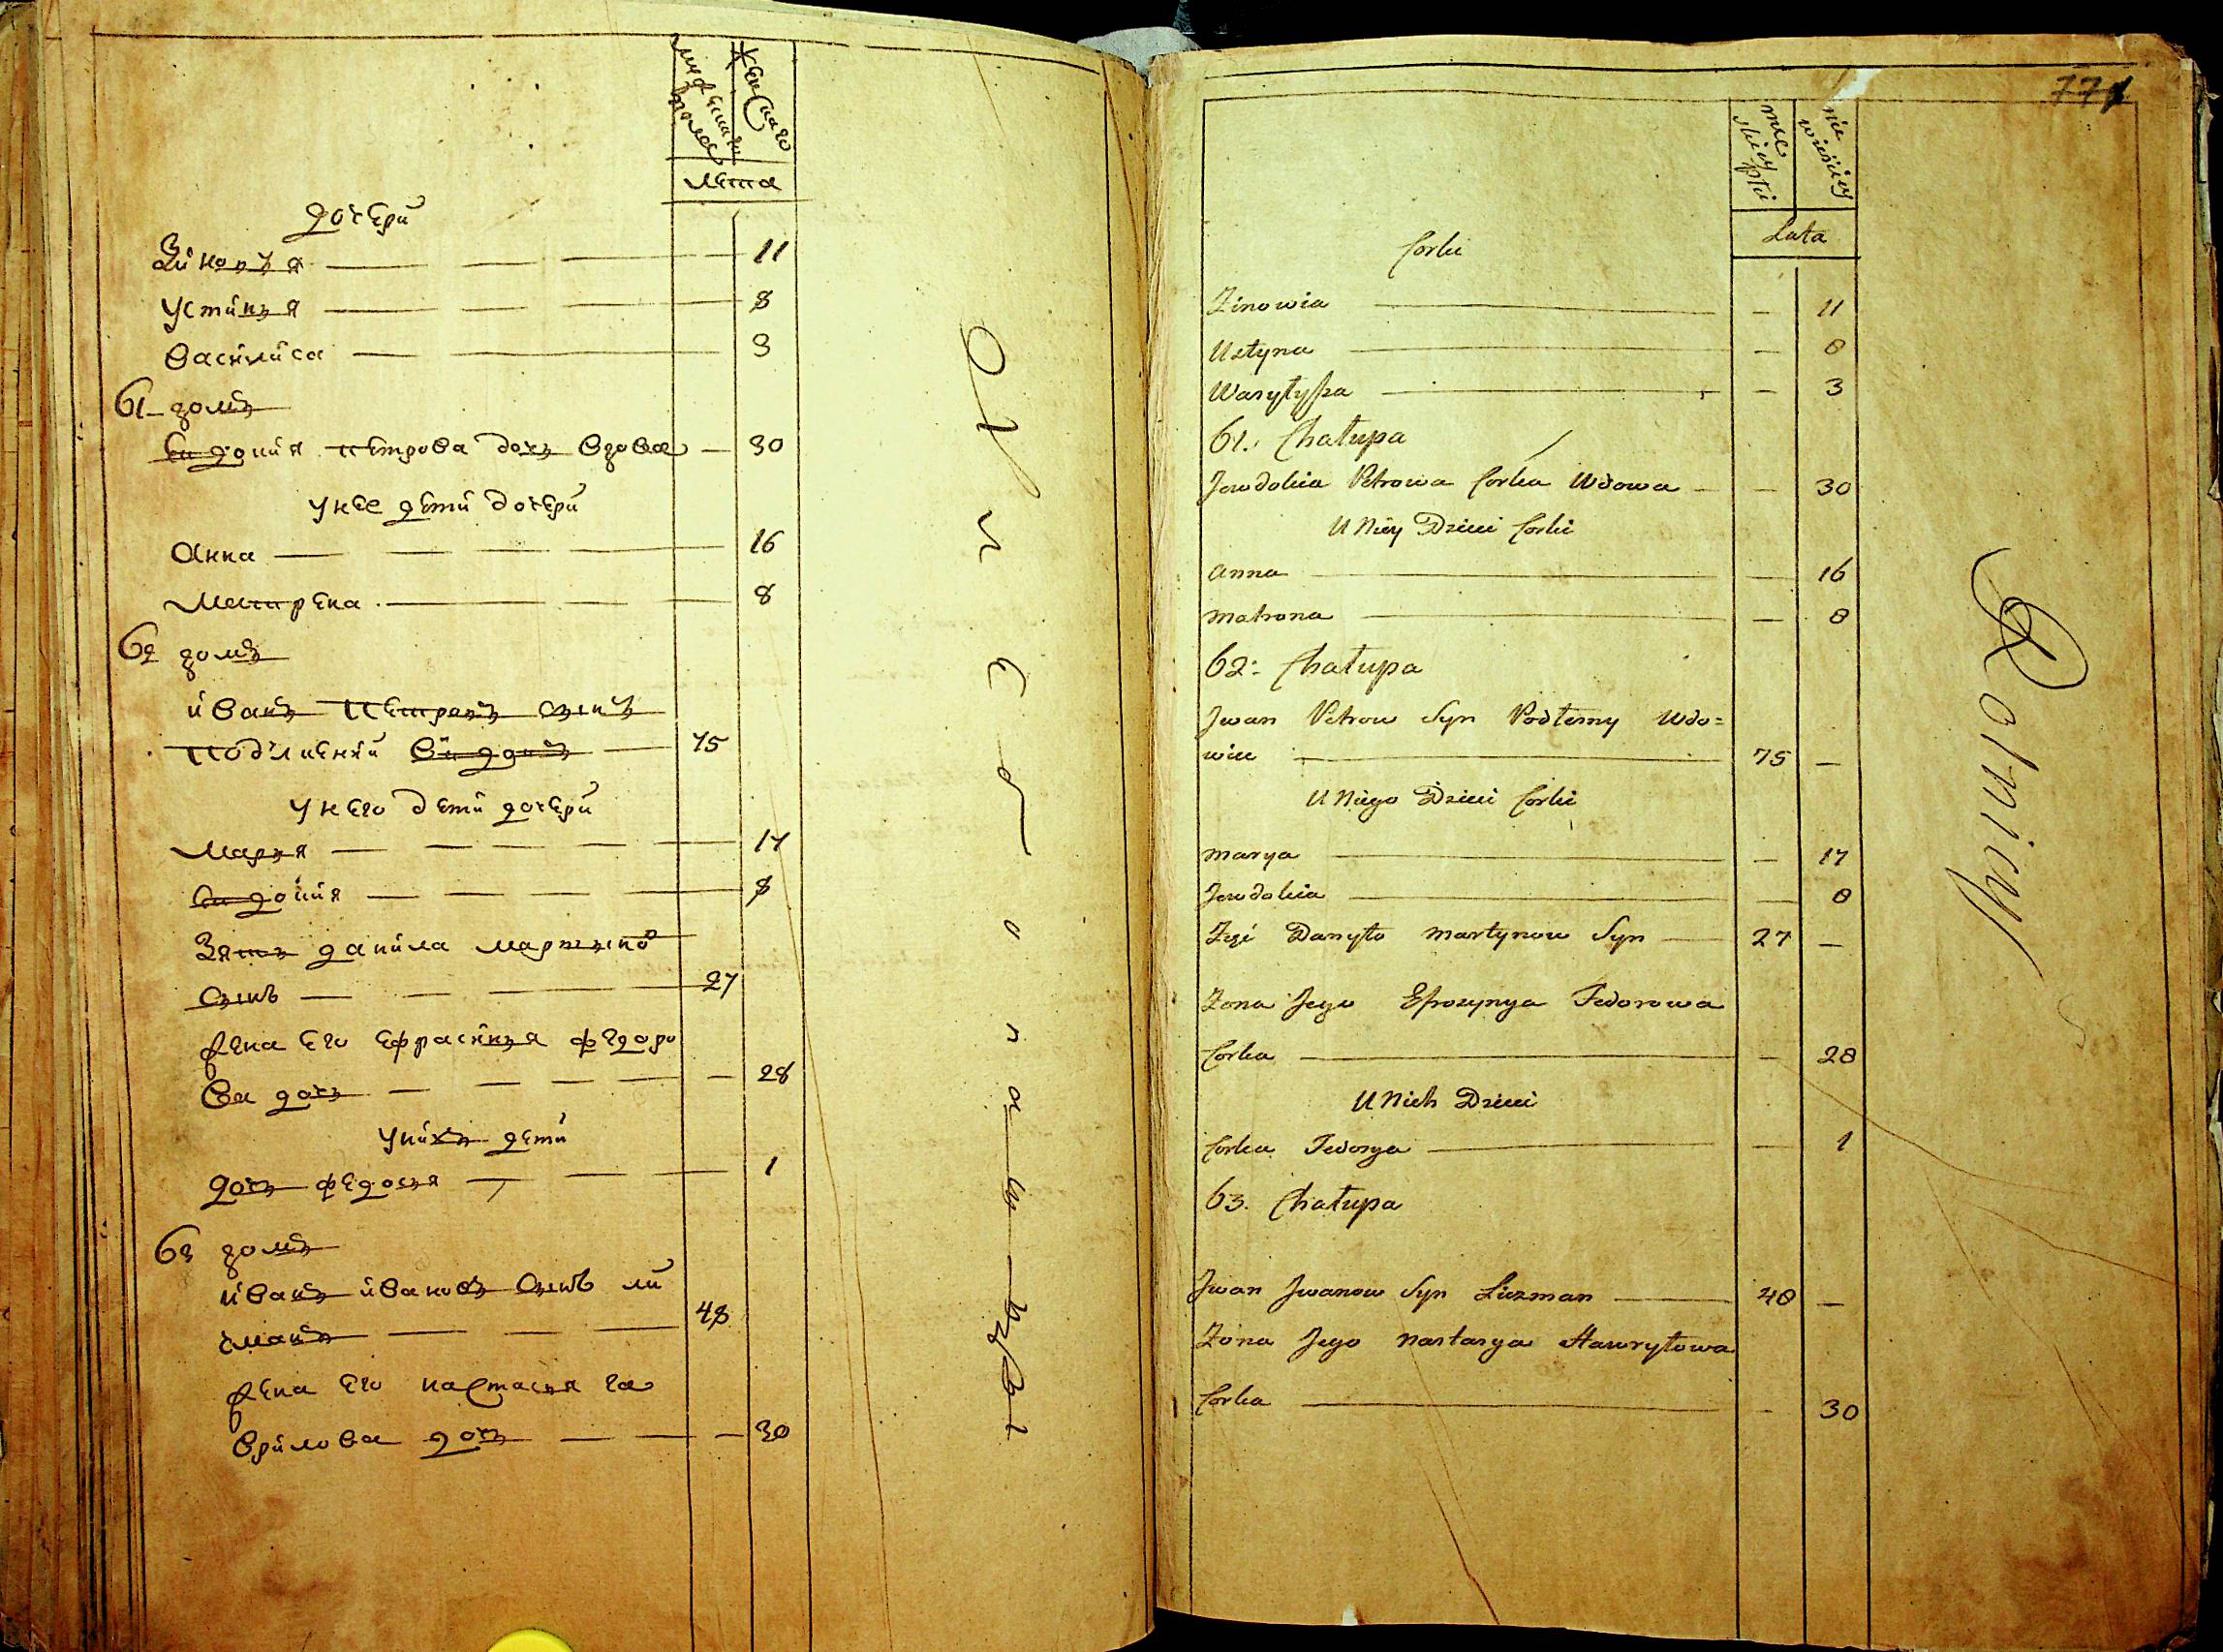 мужеска пола
женскаго
лета
дочери
Зиновъя 11
Устинъя 8
Василиса 3
61 домъ
Евдокия петрова дочъ вдова 30
у нее дети дочери
Анна 16
Матрена 8
62 домъ
иванъ Петровъ сынъ
подлисний вдовъ 75
у него дети дочери
Маръя 17
Евдокия 8
Зять данила мартынов
сынъ 27
жена его ефрасинъя федоро
ва дочъ 28
у нихъ дети
дочъ федосъя 1
63 домъ
иванъ ивановъ сынъ ли
сманъ 48
жена его настасъя га
врилова дочъ 30
771
męskiey płci
niewieściey
Lata
Corki
Zinowia 11
Ustyna 8
Wasylyssa 3
61. Chałupa
Jewdokia Petrowa Corka Wdowa 30
U Niey Dzieci Corki
Anna 16
Matrona 8
62: Chałupa
Jwan Petrow Syn Podlesny Wdo=
wiec 75
U Niego Dzieci Corki
Marya 17
Jewdokia 8
Zięć Danyło Martynow Syn 27
Zona Jego Efrozynya Fedorowa
Corka 28
U Nich Dzieci
Corka Fedosya 1
63. Chałupa
Jwan Jwanow Syn Liczman 48
Zona Jego Nastasya Hawryłowa
Corka 30
Rolnicy